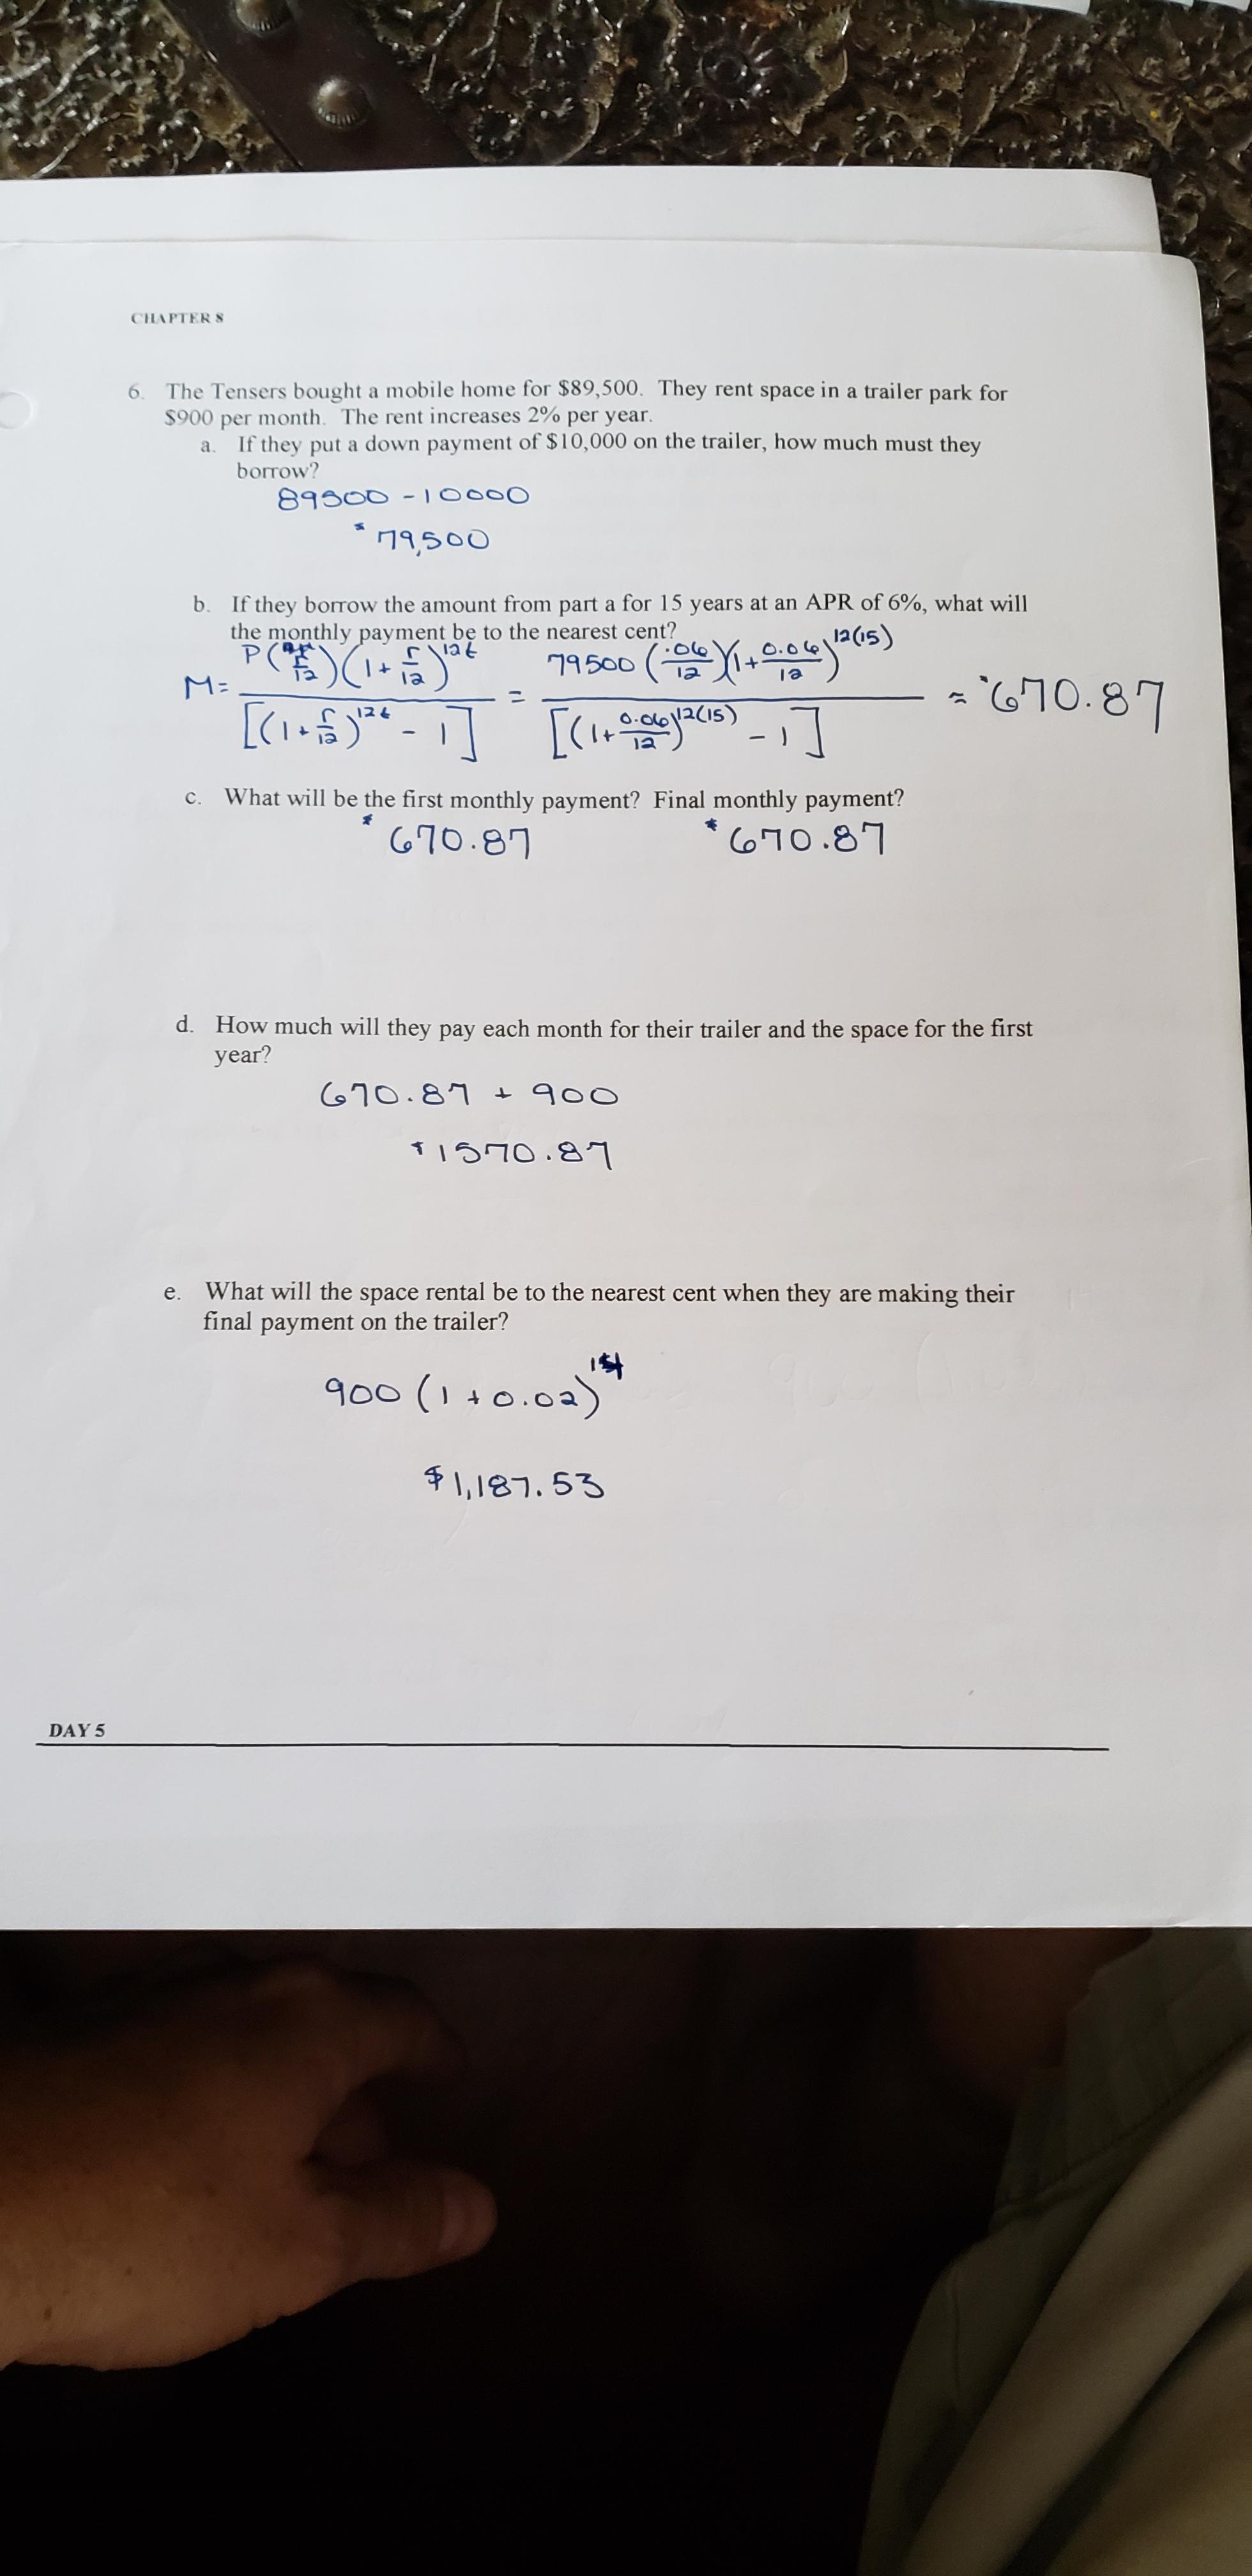 CHAPTER 8
6. The Tensers bought a mobile home for $89,500. They rent space in a trailer park for
$900 per month. The rent increases 2% per year.
a. If they put a down payment of $10,000 on the trailer, how much must they
borrow?
89500 - 10000
$79,500
b. If they borrow the amount from part a for 15 years at an APR of 6%, what will
the monthly payment be to the nearest cent?
M = P(r/12)(1 + r/12)^12t / [(1 + r/12)^12t - 1] = 79500(.06/12)(1 + 0.06/12)^12(15) / [(1 + 0.06/12)^12(15) - 1] ≈ $670.87
c. What will be the first monthly payment? Final monthly payment?
$670.87 $670.87
d. How much will they pay each month for their trailer and the space for the first
year?
670.87 + 900
$1570.87
e. What will the space rental be to the nearest cent when they are making their
final payment on the trailer?
900(1 + 0.02)^14
$1,187.53
DAY 5